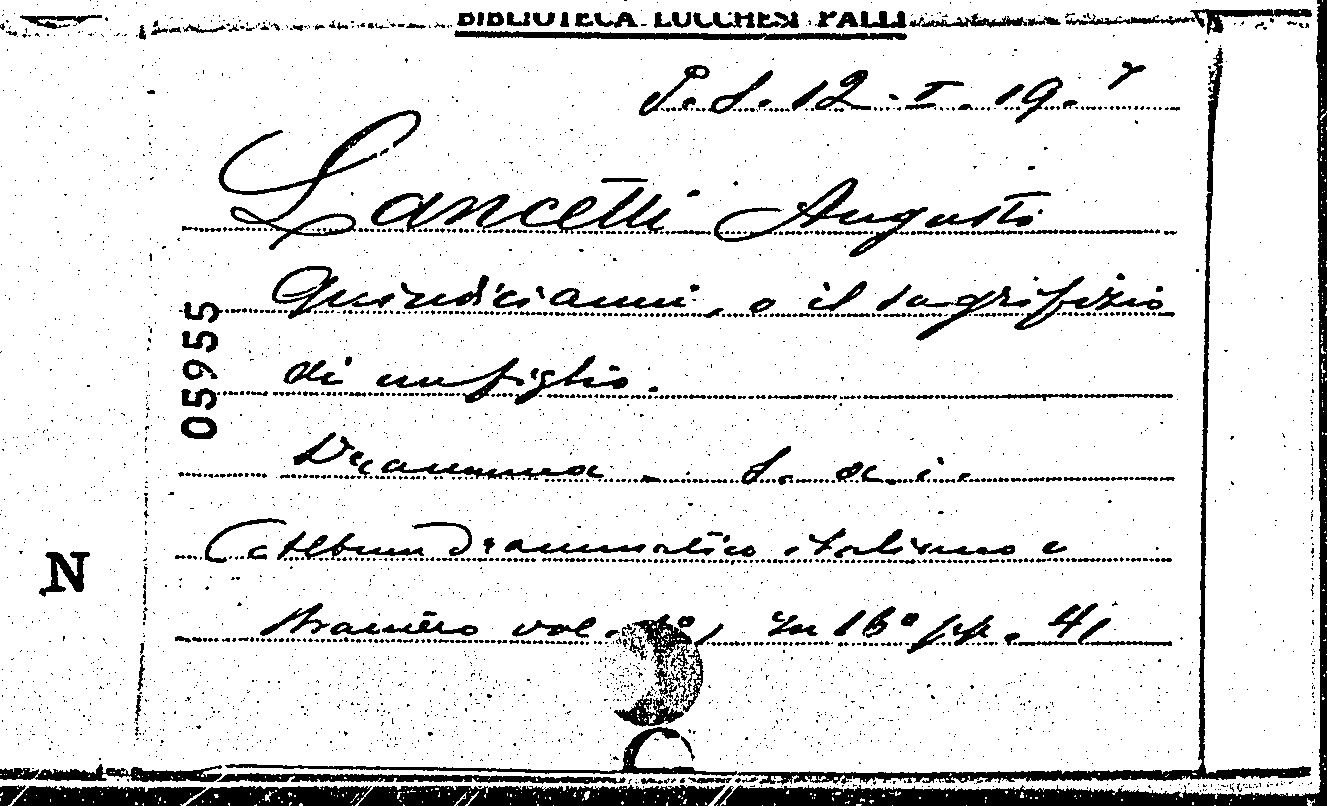 BIBLIOTECA LUCCHESI PALLI
P.S. 12.I.19.7
Lancetti Augusto
Quindicianni, o il sagrifizio
di un figlio.
Dramma - S. a. i.
(Album drammatico italiano e
straniero vol. 1º, In 16º pp. 41
05955
N